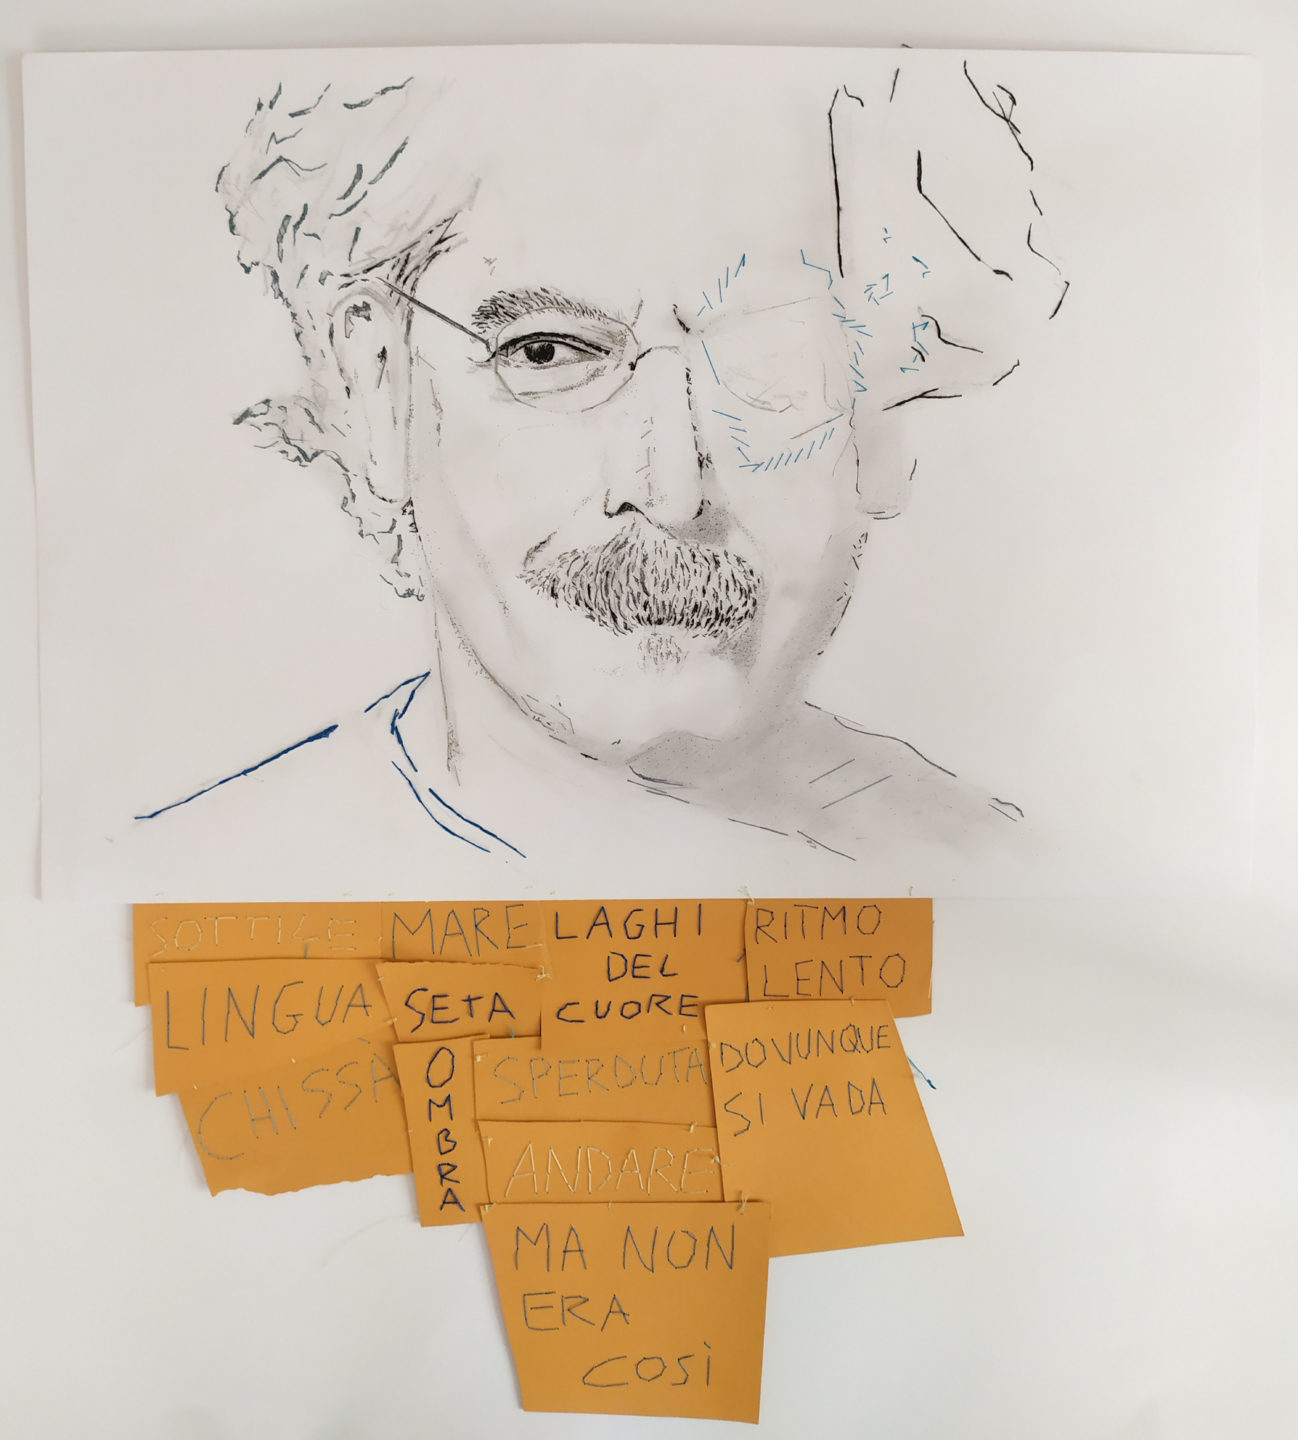 SOTTILE
MARE
LAGHI
DEL
CUORE
RITMO
LENTO
LINGUA
SETA
CHISSÀ
OMBRA
SPERDUTA
DOVUNQUE
SI VADA
ANDARE
MA NON
ERA
COSÌ